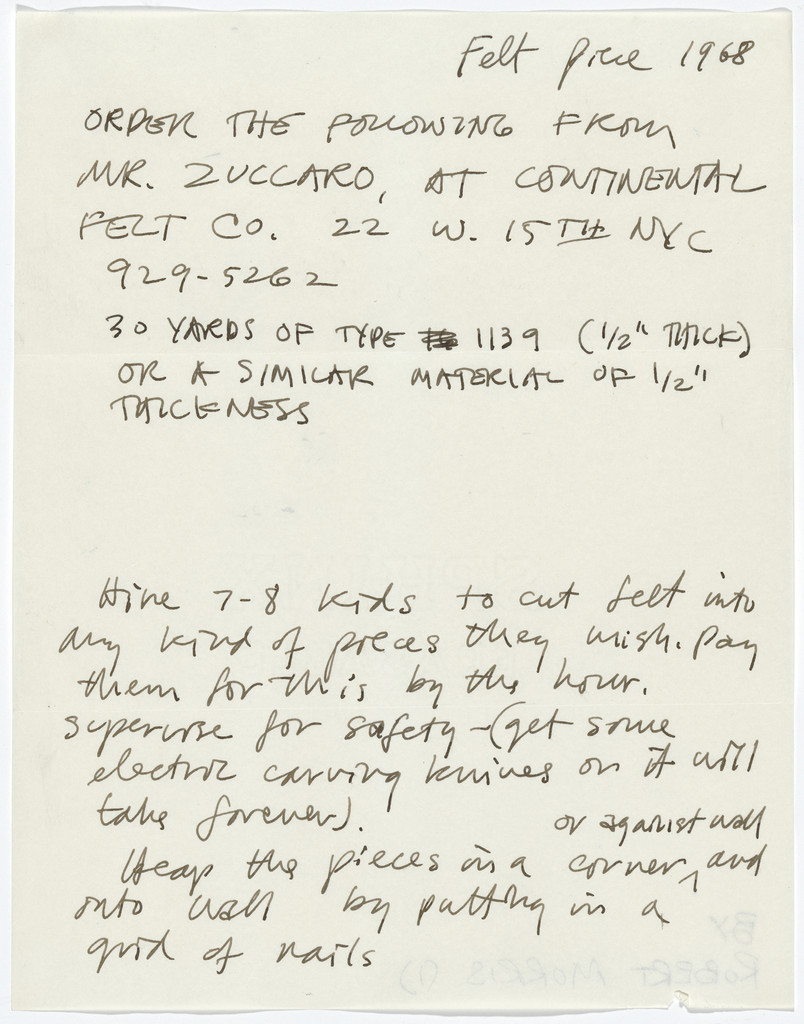 Felt piece 1968
ORDER THE FOLLOWING FROM
MR. ZUCCARO, AT CONTINENTAL
FELT CO. 22 W. 15TH NYC
929-5262
30 YARDS OF TYPE 1139 (1/2" THICK)
OR A SIMILAR MATERIAL OF 1/2"
THICKNESS
Hire 7-8 kids to cut felt into
any kind of pieces they wish. Pay
them for this by the hour.
supervise for safety - (get some
electric carving knives or it will
take forever).
or against wall
Heap the pieces in a corner, and
onto wall by putting in a
grid of nails
BY
ROBERT MORRIS (1)